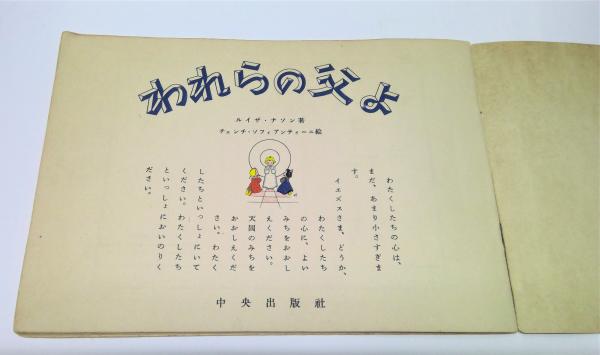 われらの父よ
ルイザ・ナソン著
チェンチ・ソフィアンティーニ絵
わたくしたちの心は、
まだ、あまり小さすぎま
す。
イエズスさま、どうか、
わたくしたち
の心に、よい
みちをおおし
えください。
天国のみちを
おおしえくだ
さい。わたく
したちといっしょにいて
ください。わたくしたち
といっしょにおいのりく
ださい。
中央出版社